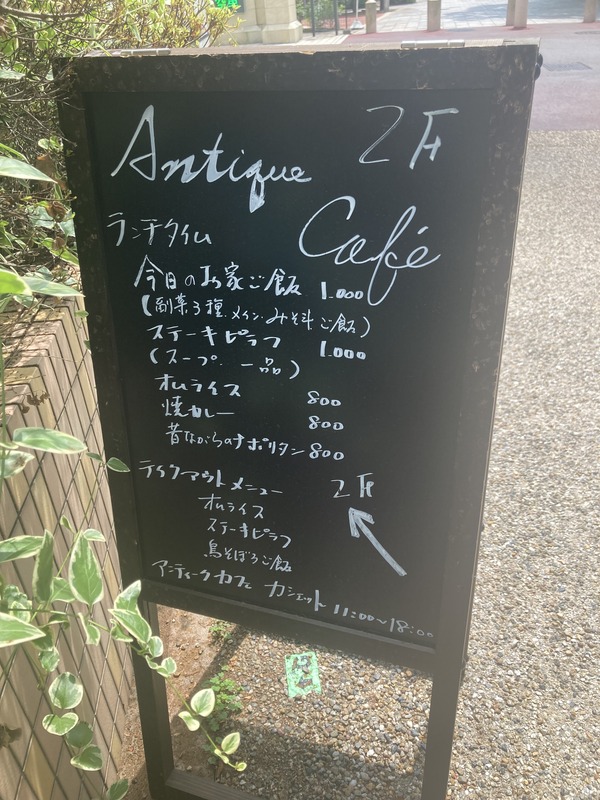 Antique 2F
Café
ランチタイム
今日のお家ご飯 1.000
(副菜3種、メイン、みそ汁ご飯)
ステーキピラフ 1.000
(スープ 一品)
オムライス 800
焼カレー 800
昔ながらのナポリタン 800
テイクアウトメニュー 2F
オムライス
ステーキピラフ
鳥そぼろご飯
アンティークカフェ カシェット 11:00~18:00